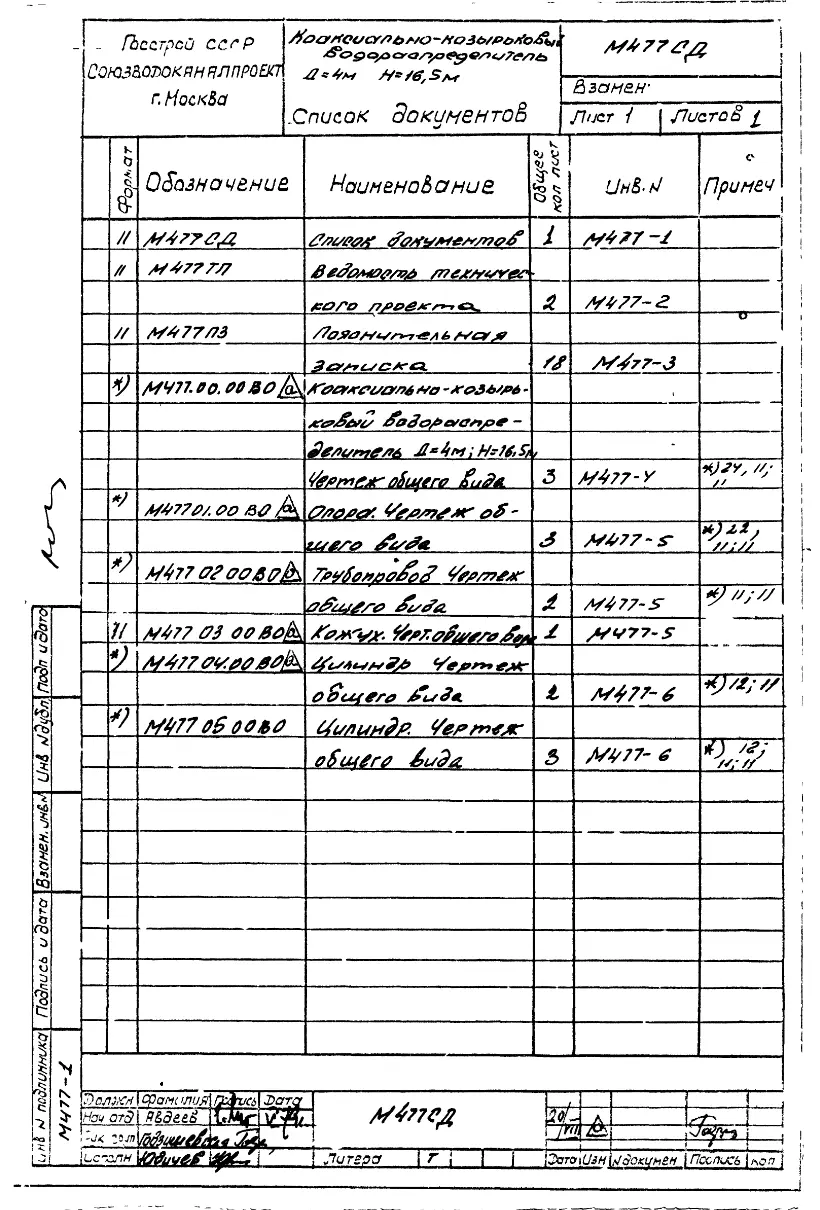 Госстрой СССР
СОЮЗВОДОКАНАЛПРОЕКТ
г. Москва
Коаксиально-козырьковый
водораспределитель
Д=4м Н=16,5м
Список документов
М477СД
Взамен
Лист 1 Листов 1
Формат Обозначение Наименование Общее кол лист Инв. N Примеч
11 М477СД Список документов 1 М477-1
11 М477ТП Ведомость техничес-
кого проекта 2 М477-2
11 М477ПЗ Пояснительная
записка 18 М477-3
*) М477.00.00ВО а Коаксиально-козырь-
ковый водораспре-
делитель Д=4м; Н=16,5м
Чертеж общего вида 3 М477-4 *) 24, 11;
11
*) М47701.00 ВО а Опора. Чертеж об-
щего вида 3 М477-5 *) 22,
11; 11
*) М477 02 00ВО а Трубопровод Чертеж
общего вида 2 М477-5 *) 11; 11
11 М477 03 00ВО а Кожух. Черт. общего вида 1 М477-5
*) М477 04.00ВО а Цилиндр Чертеж
общего вида 2 М477-6 *) 12; 11
*) М477 05 00ВО Цилиндр. Чертеж
общего вида 3 М477-6 *) 12;
11; 11
Подп и дата
Инв N дубл
Взамен. инв. N
Подпись и дата
Инв N подлинника
М477-1
Должен Фамилия Подпись Дата
Нач отд Авдеев
Исполн Юдичев
М477СД
Литера Т
20/VIII а
Дата Изм N докумен Подпись Кол